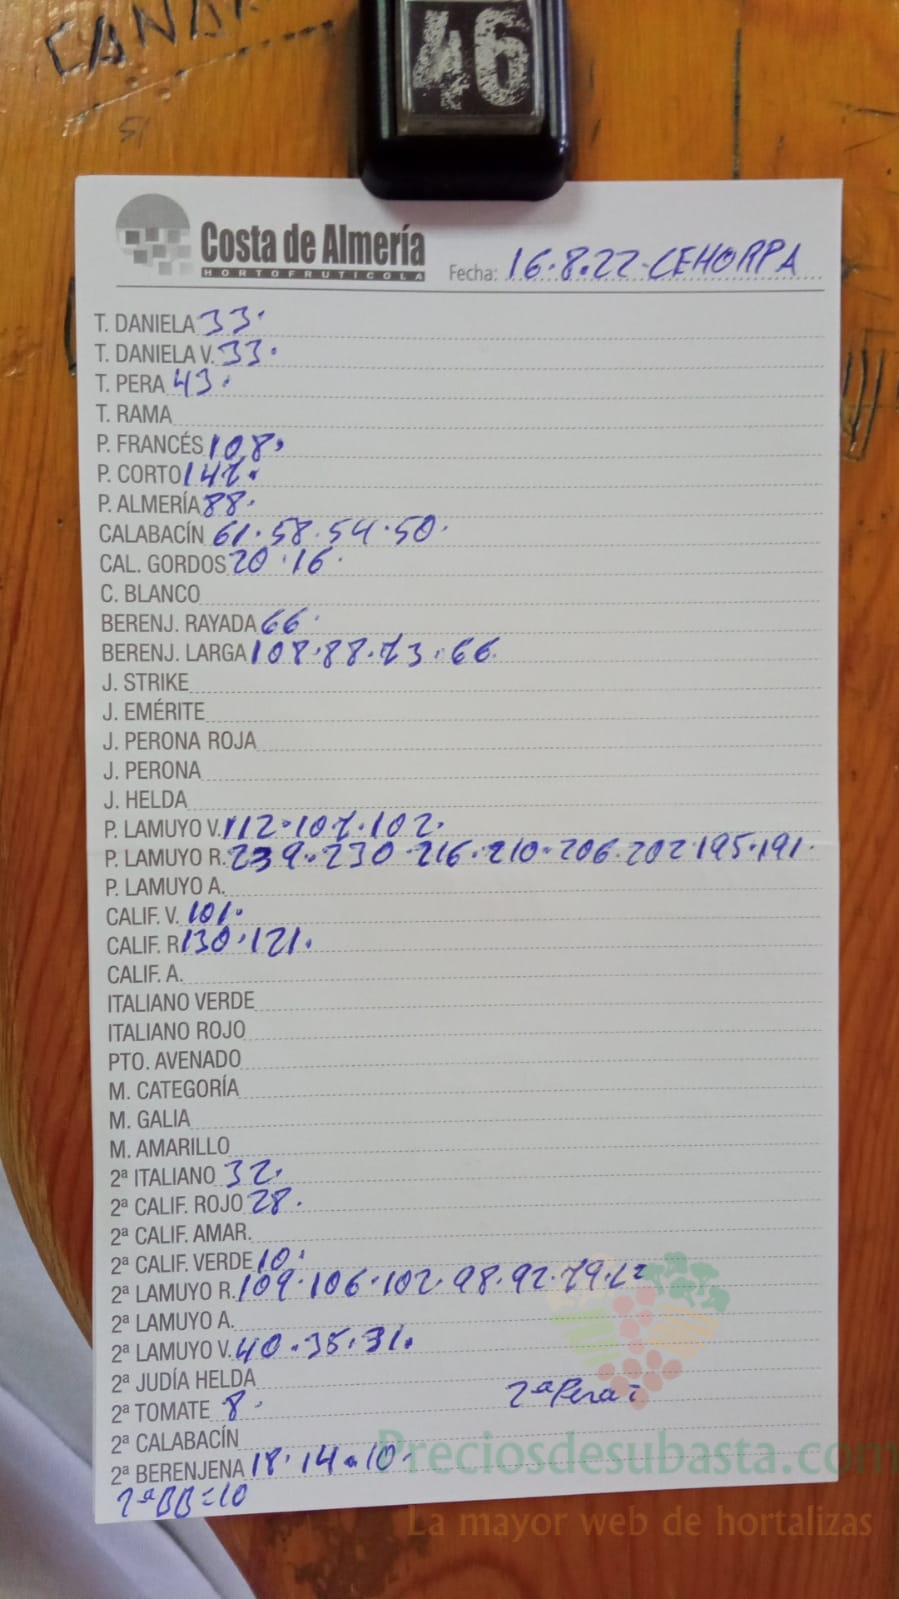 CANA
46
Costa de Almería
HORTOFRUTICOLA
Fecha: 16.8.22-CEHORPA
T. DANIELA 33.
T. DANIELA V. 33.
T. PERA 43.
T. RAMA
P. FRANCÉS 108.
P. CORTO 147.
P. ALMERÍA 88.
CALABACÍN 61.58.54.50.
CAL. GORDOS 20.16.
C. BLANCO
BERENJ. RAYADA 66.
BERENJ. LARGA 108.88.73.66.
J. STRIKE
J. EMÉRITE
J. PERONA ROJA
J. PERONA
J. HELDA
P. LAMUYO V. 112.107.102.
P. LAMUYO R. 239.230.216.210.206.202.195.191.
P. LAMUYO A.
CALIF. V. 101.
CALIF. R 130.121.
CALIF. A.
ITALIANO VERDE
ITALIANO ROJO
PTO. AVENADO
M. CATEGORÍA
M. GALIA
M. AMARILLO
2ª ITALIANO 32.
2ª CALIF. ROJO 28.
2ª CALIF. AMAR.
2ª CALIF. VERDE 10.
2ª LAMUYO R. 109.106.102.98.92.79.
2ª LAMUYO A.
2ª LAMUYO V. 40.35.31.
2ª JUDÍA HELDA
2ª Pera=
2ª TOMATE 8.
2ª CALABACÍN
2ª BERENJENA 18.14.10.
2ªBB=10
Preciosdesubasta.com
La mayor web de hortalizas